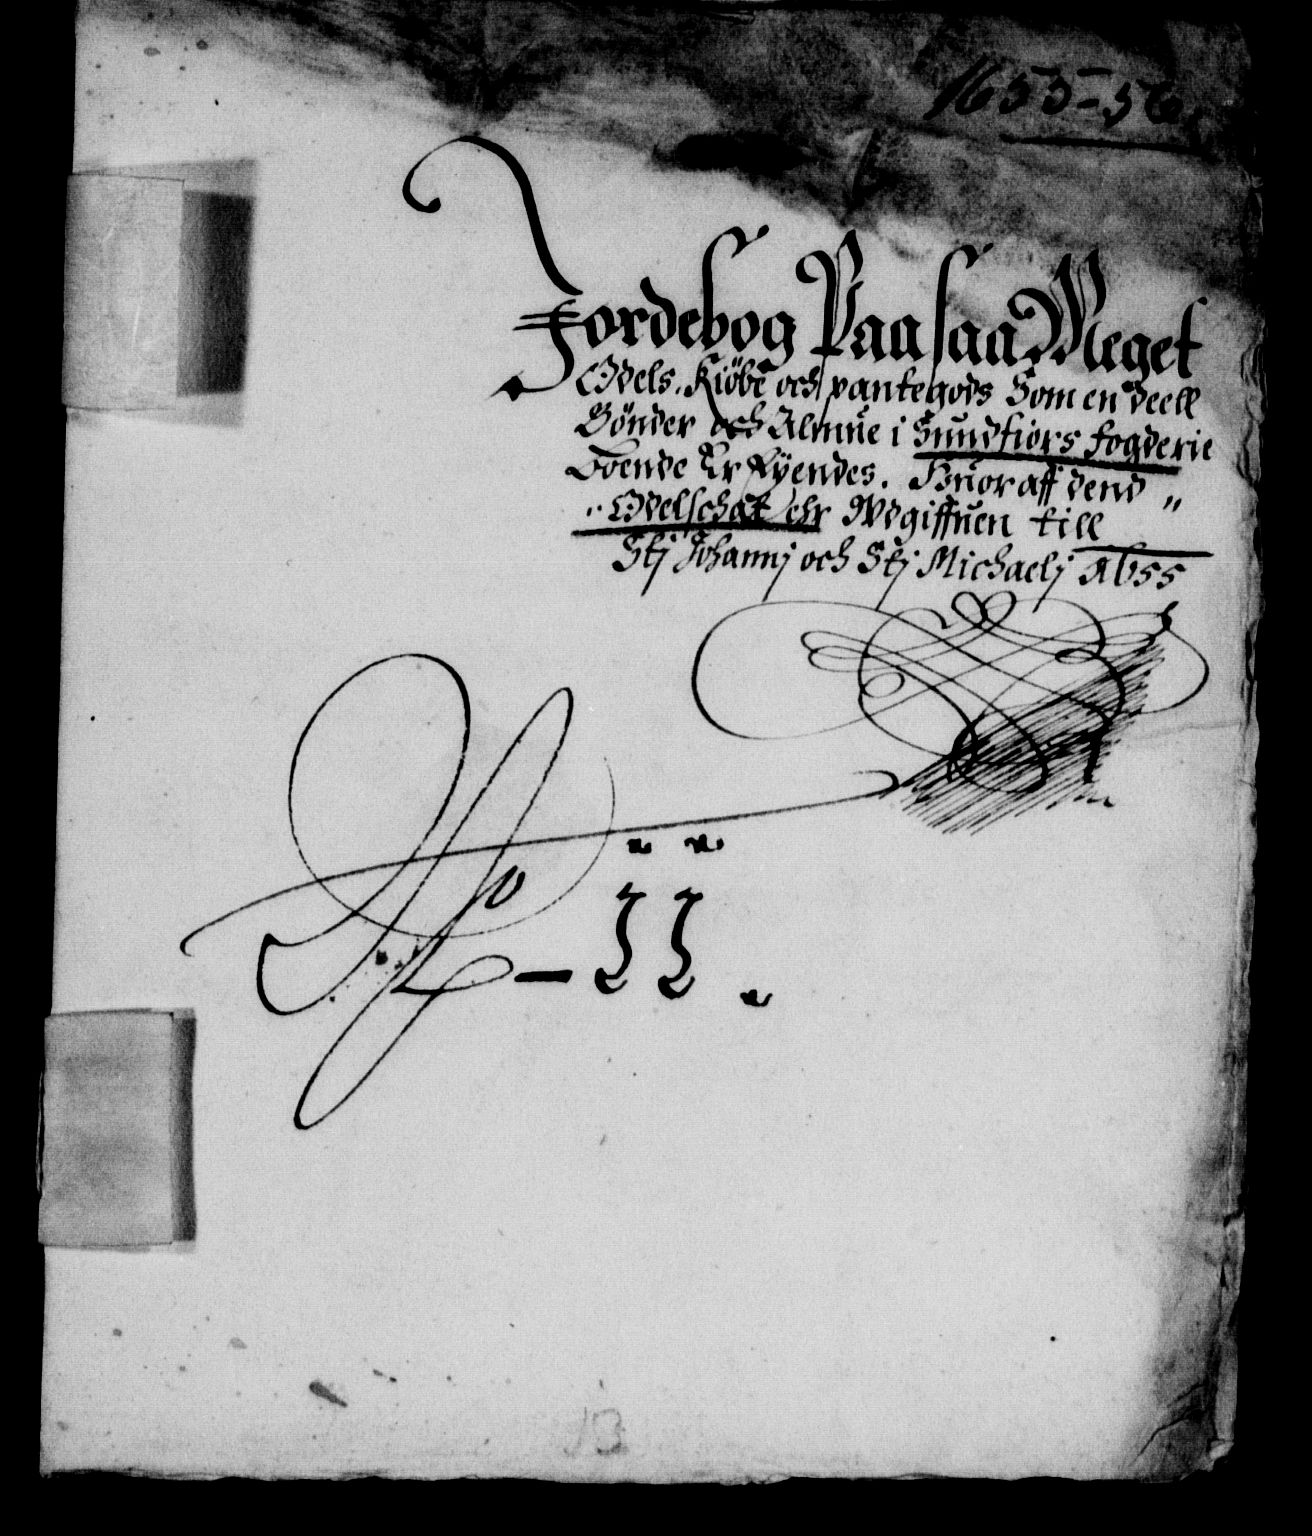 1655-56.
Jordebog Paa saa Meget
Odels. Kiöbe och pantegods Som en deell
Bönder och Almue i Sundfiors fogderie
Boende Er Eÿendes. Huoraff dend „
„ Odelschat ehr Wdgiffuen till
Stj Johannj och Stj Michaelj A 1655
No - 22.
13